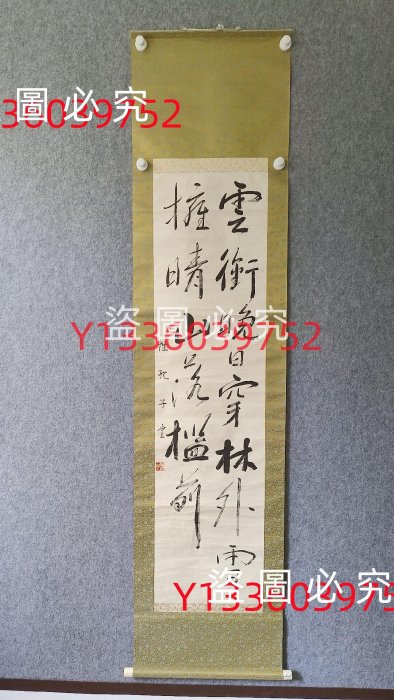 圖必究
1330039752
雲銜晚日穿林外雪
擁晴山落檻前
盜圖必究
Y1330039752
盜圖必究
Y133003975